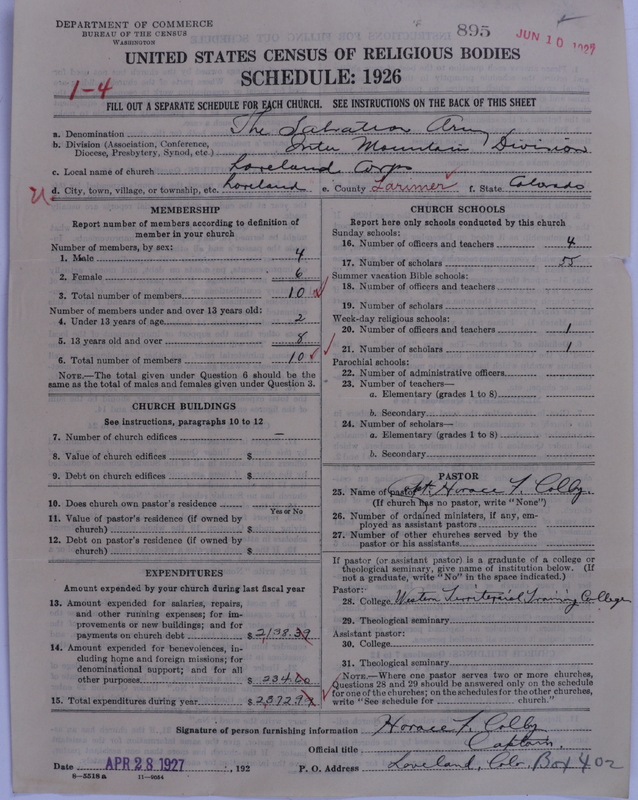 DEPARTMENT OF COMMERCE
BUREAU OF THE CENSUS
WASHINGTON
895
JUN 10 1929
UNITED STATES CENSUS OF RELIGIOUS BODIES
SCHEDULE: 1926
1-4
FILL OUT A SEPARATE SCHEDULE FOR EACH CHURCH. SEE INSTRUCTIONS ON THE BACK OF THIS SHEET
a. Denomination The Salvation Army
b. Division (Association, Conference, Diocese, Presbytery, Synod, etc.) Inter Mountain Division
c. Local name of church Loveland Corps
d. City, town, village, or township, etc. Loveland e. County Larimer f. State Colorado
MEMBERSHIP
Report number of members according to definition of
member in your church
Number of members, by sex:
1. Male 4
2. Female 6
3. Total number of members 10
Number of members under and over 13 years old:
4. Under 13 years of age 2
5. 13 years old and over 8
6. Total number of members 10
NOTE.—The total given under Question 6 should be
same as the total of males and females given under Question 3.
CHURCH BUILDINGS
See instructions, paragraphs 10 to 12
7. Number of church edifices —
8. Value of church edifices $
9. Debt on church edifices $
10. Does church own pastor's residence
Yes or No
11. Value of pastor's residence (if owned by
church) $
12. Debt on pastor's residence (if owned by
church) $
EXPENDITURES
Amount expended by your church during last fiscal year
13. Amount expended for salaries, repairs,
and other running expenses; for im-
provements or new buildings; and for
payments on church debt $ 2138.39
14. Amount expended for benevolences, in-
cluding home and foreign missions; for
denominational support; and for all
other purposes $ 234.60
15. Total expenditures during year $ 2372.99
CHURCH SCHOOLS
Report here only schools conducted by this church
Sunday schools:
16. Number of officers and teachers 4
17. Number of scholars 55
Summer vacation Bible schools:
18. Number of officers and teachers
19. Number of scholars
Week-day religious schools:
20. Number of officers and teachers 1
21. Number of scholars 1
Parochial schools:
22. Number of administrative officers
23. Number of teachers—
a. Elementary (grades 1 to 8)
b. Secondary
24. Number of scholars—
a. Elementary (grades 1 to 8)
b. Secondary
PASTOR
25. Name of pastor Capt. Horace F. Colby.
(If church has no pastor, write "None")
26. Number of ordained ministers, if any, em-
ployed as assistant pastors
27. Number of other churches served by the
pastor or his assistants
If pastor (or assistant pastor) is a graduate of a college or
theological seminary, give name of institution below. (If
not a graduate, write "No" in the space indicated.)
Pastor:
28. College Western Territorial Training College
29. Theological seminary
Assistant pastor:
30. College
31. Theological seminary
NOTE.—Where one pastor serves two or more churches,
Questions 28 and 29 should be answered only on the schedule
for one of the churches; on the schedules for the other churches,
write "See schedule for church."
Signature of person furnishing information Horace F. Colby
Official title Captain.
Date APR 28 1927, 192 P. O. Address Loveland, Colo. Box 402
8-5518a 11-9084